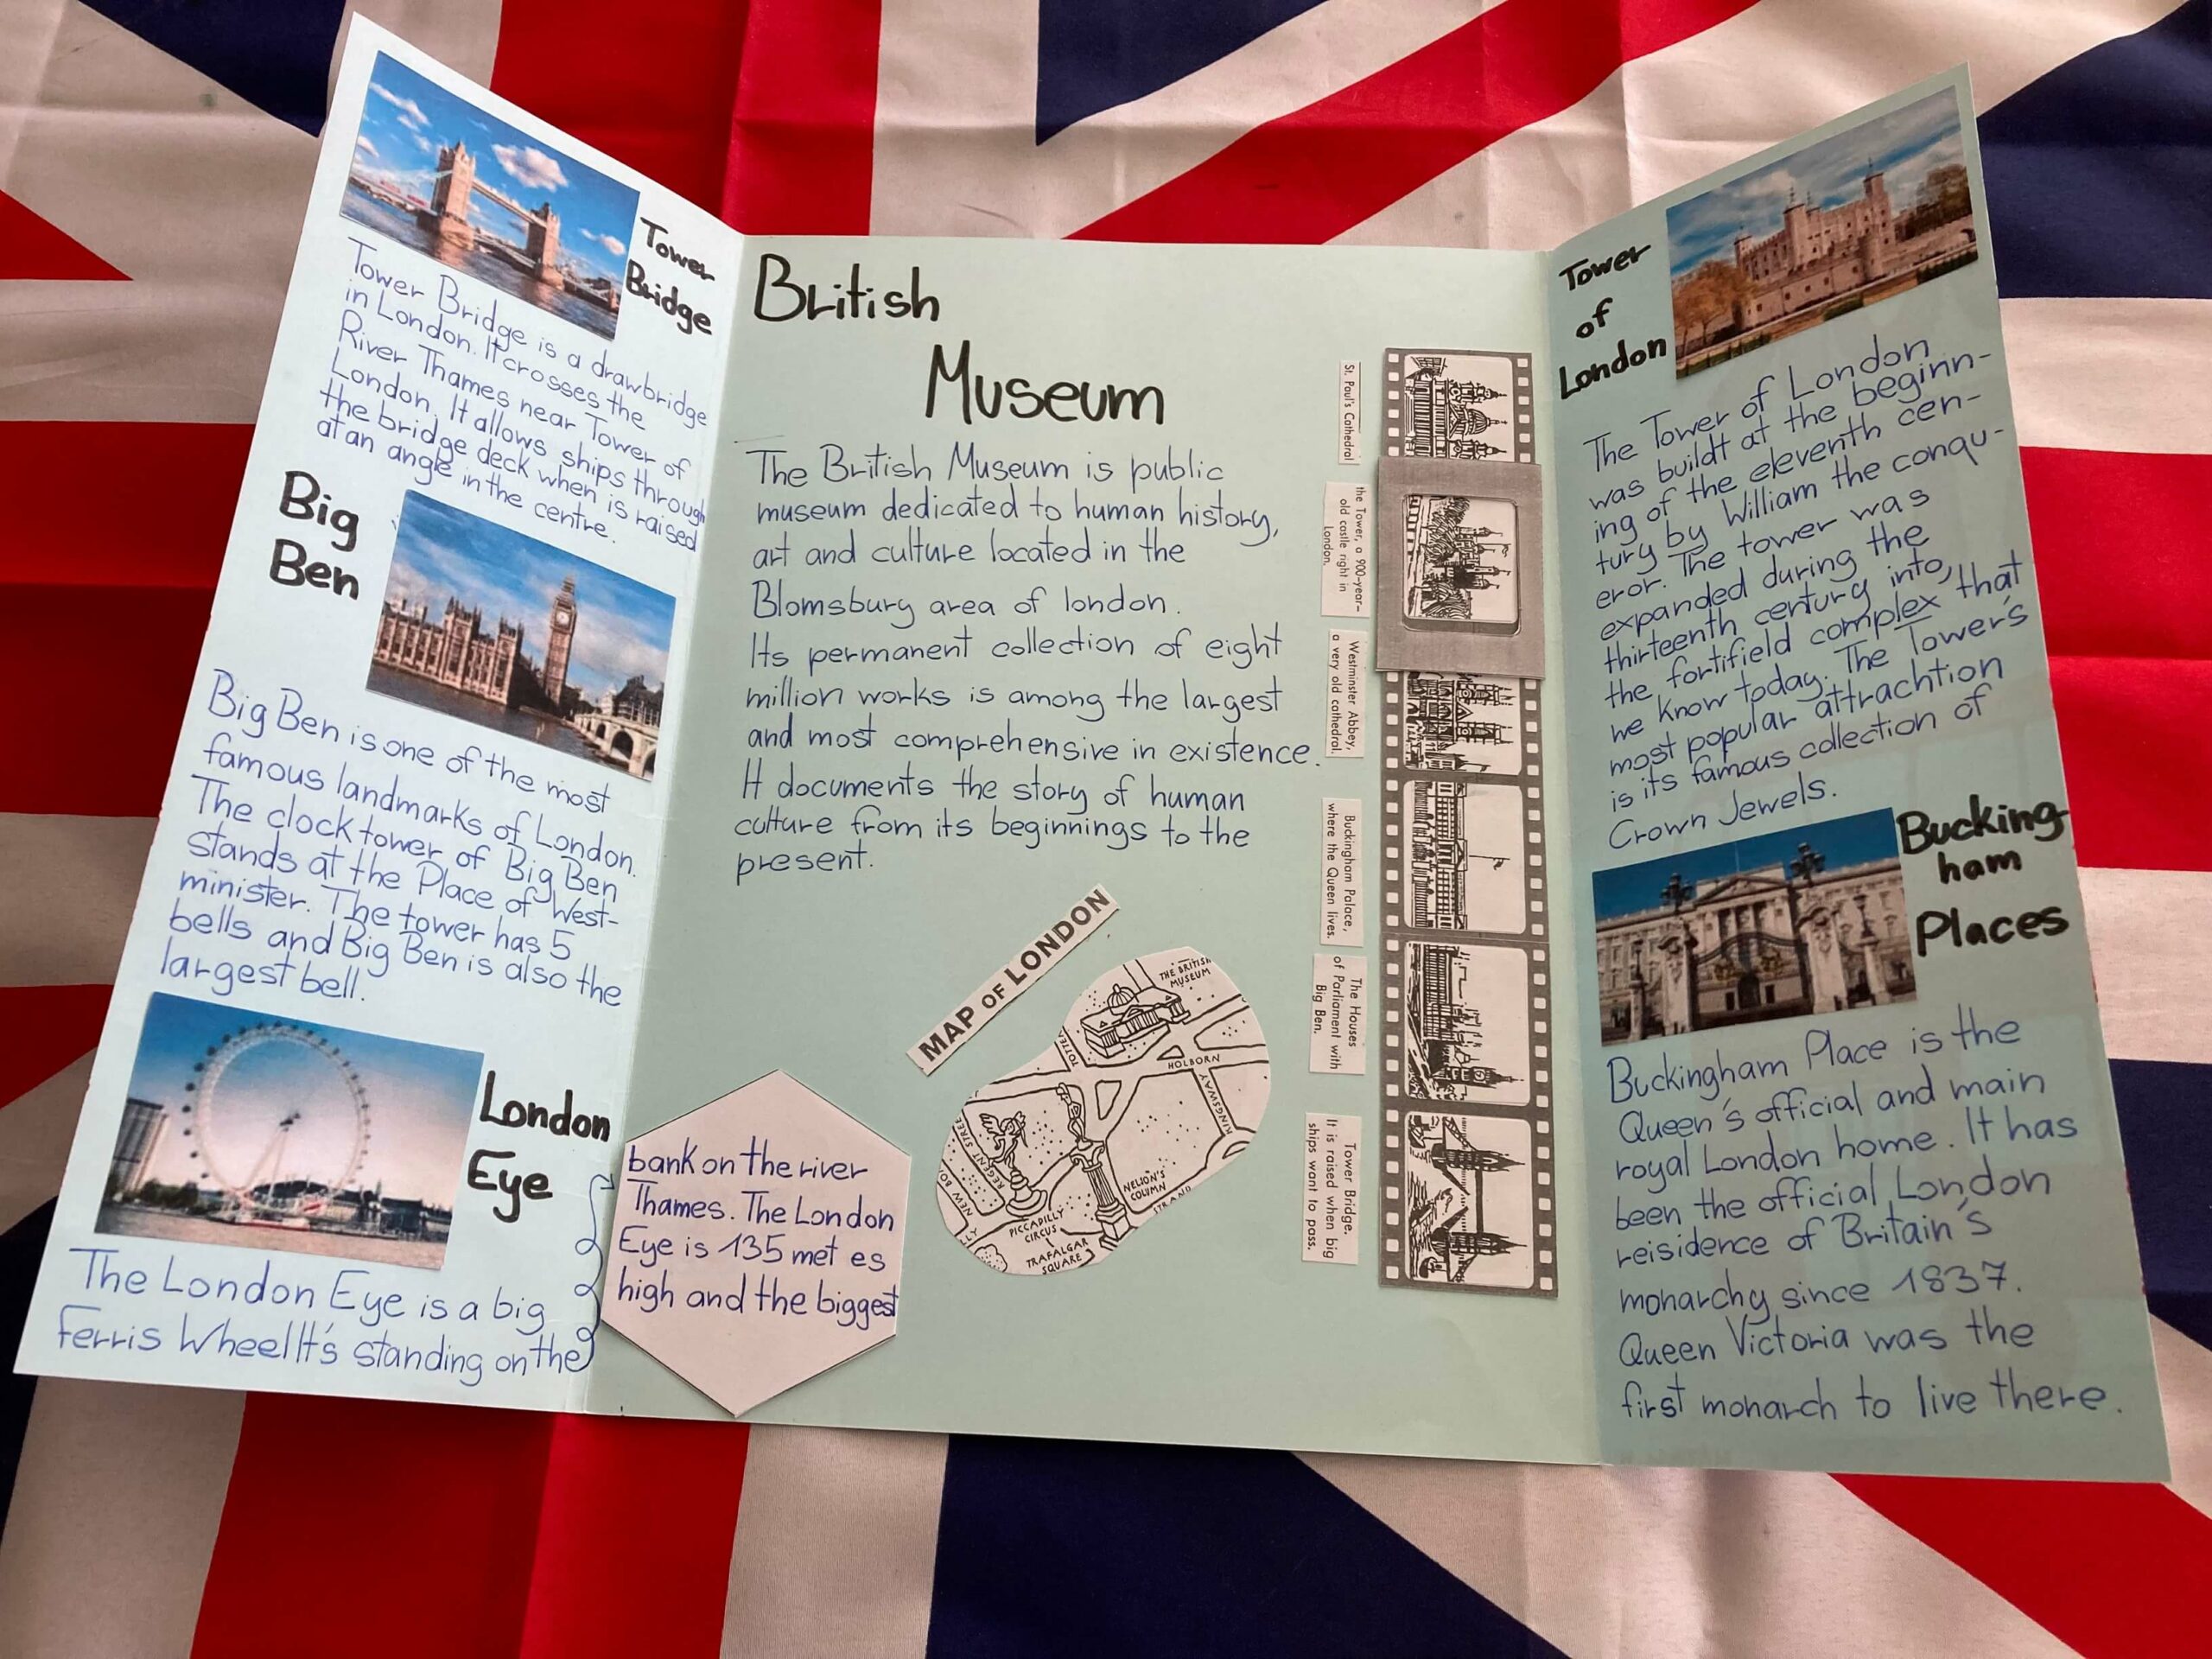 Tower
Bridge
Tower Bridge is a drawbridge
in London. It crosses the
River Thames near Tower of
London. It allows ships through
the bridge deck when is raised
at an angle in the centre.
Big
Ben
Big Ben is one of the most
famous landmarks of London.
The clock tower of Big Ben
stands at the Place of West-
minister. The tower has 5
bells and Big Ben is also the
largest bell.
London
Eye
The London Eye is a big
Ferris Wheel It's standing on the
bank on the river
Thames. The London
Eye is 135 met es
high and the biggest
British
Museum
The British Museum is public
museum dedicated to human history,
art and culture located in the
Blomsbury area of london.
Its permanent collection of eight
million works is among the largest
and most comprehensive in existence.
It documents the story of human
culture from its beginnings to the
present.
MAP OF LONDON
THE BRITISH
MUSEUM
TOTTEN
HOLBORN
KINGSWAY
REGENT STREE
NEW BO
LLY
PICCADILLY
CIRCUS
NELSON'S
COLUMN
STRAND
TRAFALGAR
SQUARE
St. Paul's Cathedral
the Tower, a 900-year-
old castle right in
London.
Westminster Abbey,
a very old cathedral.
Buckingham Palace,
where the Queen lives.
The Houses
of Parliament with
Big Ben.
Tower Bridge.
It is raised when big
ships want to pass.
Tower
of
London
The Tower of London
was buildt at the beginn-
ing of the eleventh cen-
tury by William the conqu-
eror. The tower was
expanded during the
thirteenth century into,
the fortifield complex that
we know today. The Tower's
most popular attrachtion
is its famous collection of
Crown Jewels.
Bucking-
ham
Places
Buckingham Place is the
Queen's official and main
royal London home. It has
been the official London
reisidence of Britain's
monarchy since 1837.
Queen Victoria was the
first monarch to live there.